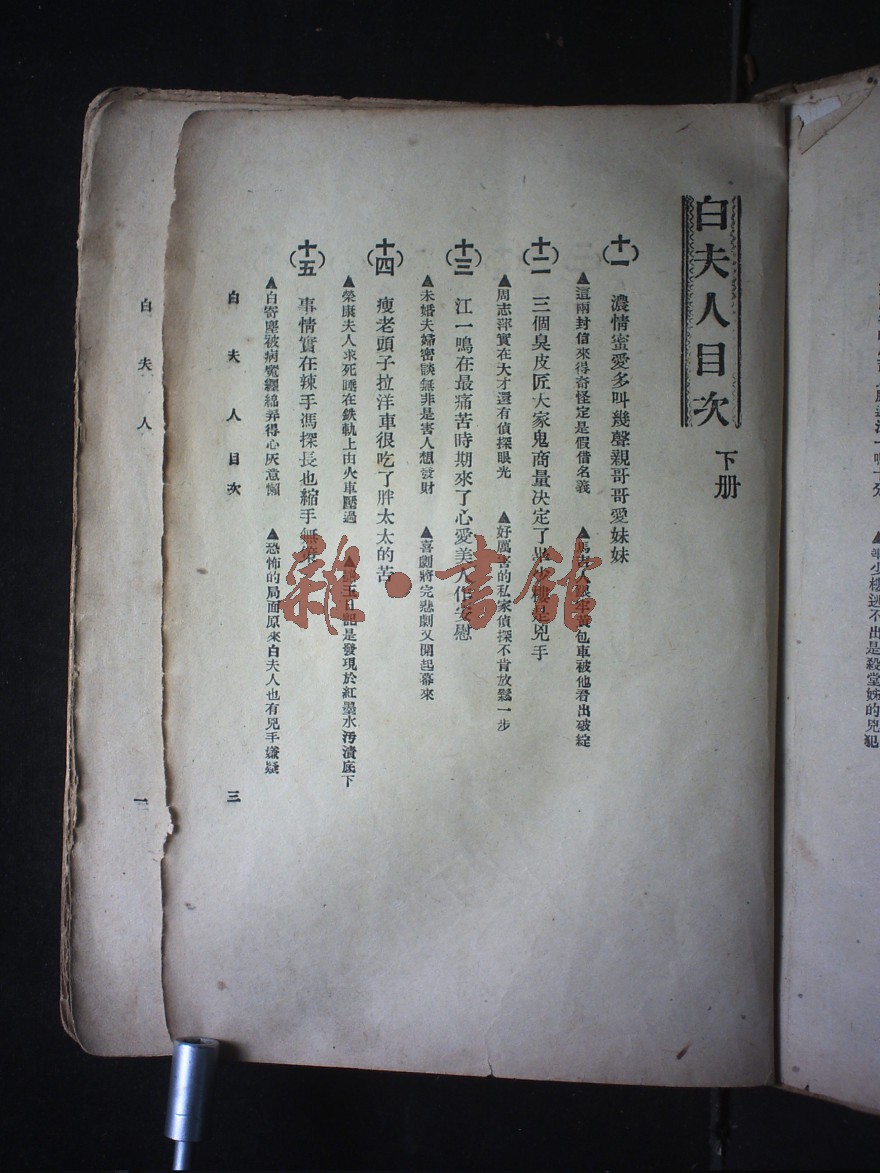 白夫人目次 下册
(十一) 濃情蜜愛多叫幾聲親哥哥愛妹妹
▲這兩封信來得奇怪定是假借名義 包車被他看出破綻
(十二) 三個臭皮匠大家鬼商量決定了 是兇手
▲周志萍實在大才還有偵探眼光 ▲好厲害的私家偵探不肯放鬆一步
(十三) 江一鳴在最痛苦時期來了心愛美人作安慰
▲未婚夫婦密談無非是害人想發財 ▲喜劇將完悲劇又開起幕來
(十四) 瘦老頭子拉洋車很吃了胖太太的苦
▲榮康夫人求死睡在鉄軌上由火車壓過 玉日記是發現於紅墨水汚漬底下
(十五) 事情實在辣手馮探長也縮手無策
▲白寄塵被病魔纏綿弄得心灰意懶 ▲恐怖的局面原來白夫人也有兇手嫌疑
白夫人目次 三
白夫人 一
雜·書館
逃不出是殺堂姊的兇犯